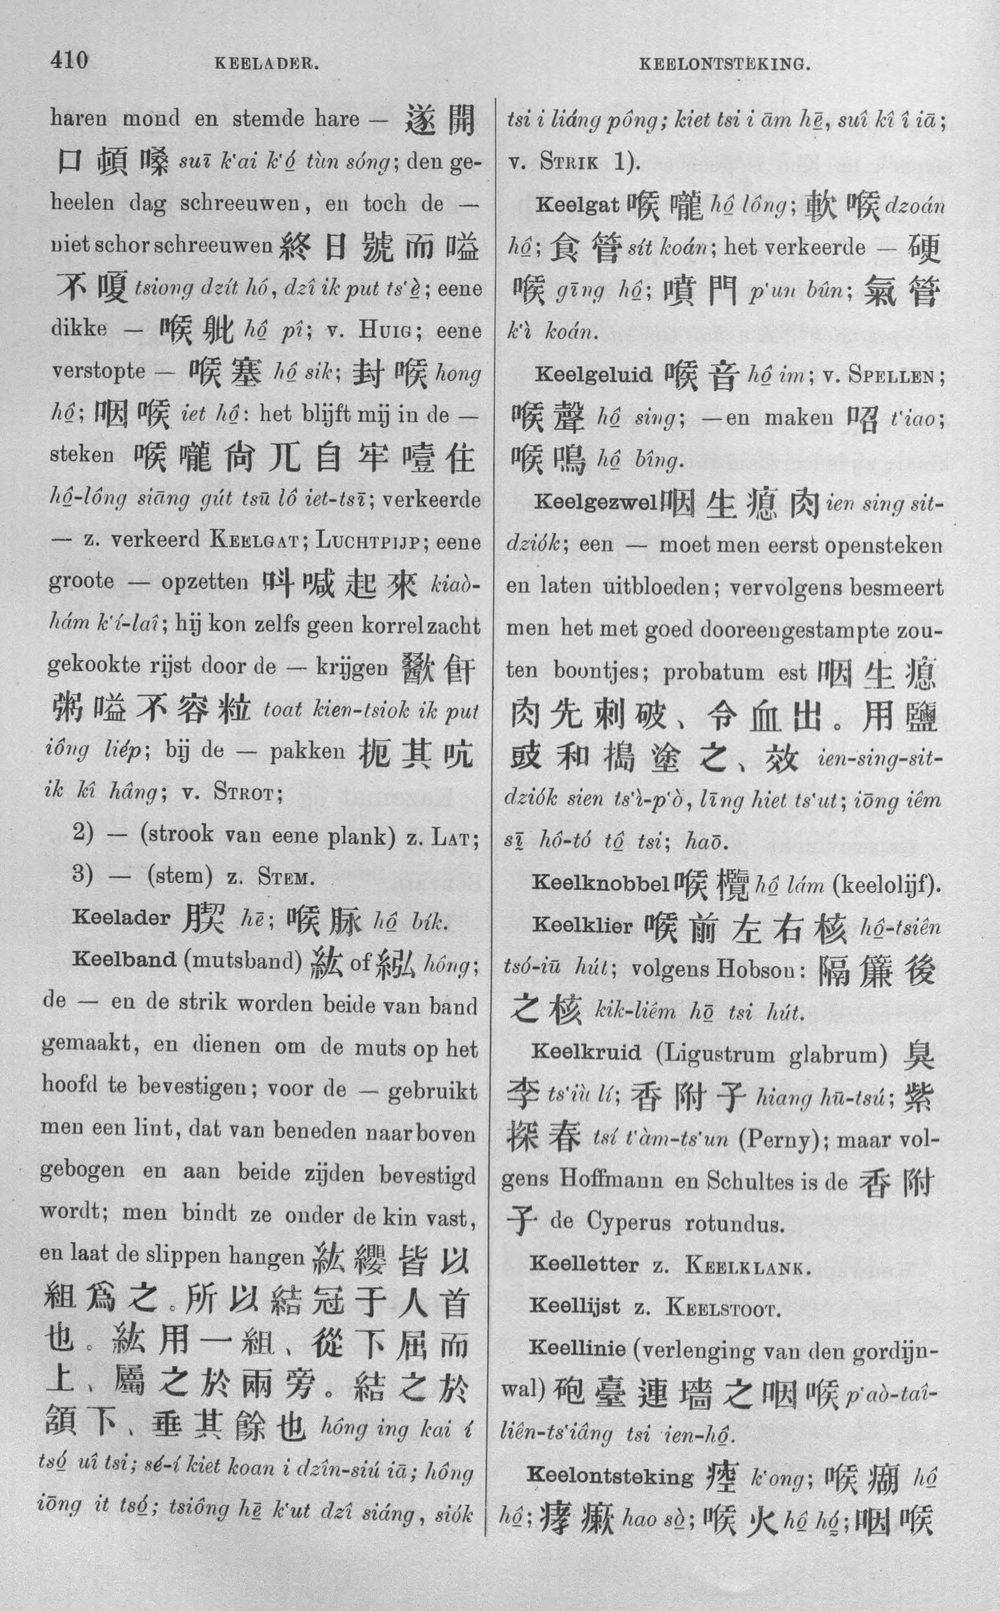 410 KEELADER. KEELONTSTEKING.
haren mond en stemde hare — 遂開
口頓嗓 suī k‘ai k‘ó̤ tùn sóng; den ge-
heelen dag schreeuwen, en toch de —
niet schor schreeuwen 終日號而嗌
不嗄 tsiong dzít hó, dzî ik put ts‘è̤; eene
dikke — 喉䏢 hô̤ pî; v. HUIG; eene
verstopte — 喉塞 hô̤ sik; 封喉 hong
hô̤; 咽喉 iet hô̤: het blijft mij in de —
steken 喉嚨尙兀自牢噎住
hô̤-lông siāng gút tsū lô iet-tsī; verkeerde
— z. verkeerd KEELGAT; LUCHTPIJP; eene
groote — opzetten 呌喊起來 kiaò-
hám k‘í-laî; hij kon zelfs geen korrel zacht
gekookte rijst door de — krijgen 歠飦
粥嗌不容粒 toat kien-tsiok ik put
iông liép; bij de — pakken 扼其吭
ik kî hâng; v. STROT;
2) — (strook van eene plank) z. LAT;
3) — (stem) z. STEM.
Keelader hē; 喉脉 hô̤ bík.
Keelband (mutsband) 紘 of hông;
de — en de strik worden beide van band
gemaakt, en dienen om de muts op het
hoofd te bevestigen; voor de — gebruikt
men een lint, dat van beneden naar boven
gebogen en aan beide zijden bevestigd
wordt; men bindt ze onder de kin vast,
en laat de slippen hangen 紘纓皆以
組爲之。所以結冠于人首
也。紘用一組、從下屈而
上、屬之於兩旁。結之於
頷下、垂其餘也 hông ing kai í
tsó̤ uî tsi; sé-í kiet koan i dzîn-siú iā; hông
iōng it tsó̤; tsiông hē̤ k‘ut dzî siáng, siók
tsi i liáng pông; kiet tsi i ām hē̤, suî kî î iā;
v. STRIK 1).
Keelgat 喉嚨 hô̤ lông; 軟喉 dzoán
hô̤; 食管 sít koán; het verkeerde — 硬
喉 gīng hô̤; 噴門 p‘un bûn; 氣管
k‘ì koán.
Keelgeluid 喉音 hô̤ im; v. SPELLEN;
喉聲 hô̤ sing; —en maken 㕿 t‘iao;
喉鳴 hô̤ bîng.
Keelgezwel 咽生瘜肉 ien sing sit-
dziók; een — moet men eerst opensteken
en laten uitbloeden; vervolgens besmeert
men het met goed dooreengestampte zou-
ten boontjes; probatum est 咽生瘜
肉先刺破、令血出。用鹽
豉和搗塗之、效 ien-sing-sit-
dziók sien ts‘ì-p‘ò, līng hiet ts‘ut; iōng iêm
sī̤ hô-tó tô̤ tsi; haō.
Keelknobbel 喉欖 hô̤ lám (keelolijf).
Keelklier 喉前左右核 hô̤-tsiên
tsó-iū hút; volgens Hobson: 隔簾後
之核 kik-liém hō̤ tsi hút.
Keelkruid (Ligustrum glabrum) 臭
李 ts‘iù lí; 香附子 hiang hū-tsú; 紫
探春 tsí t‘àm-ts‘un (Perny); maar vol-
gens Hoffmann en Schultes is de 香附
子 de Cyperus rotundus.
Keelletter z. KEELKLANK.
Keellijst z. KEELSTOOT.
Keellinie (verlenging van den gordijn-
wal) 砲臺連墻之咽喉 p‘aò-taî-
liên-ts‘iâng tsi ien-hô̤.
Keelontsteking k‘ong; 喉 hô̤
hô̤; 痚瘷 hao sò̤; 喉火 hô̤ hó̤; 咽喉